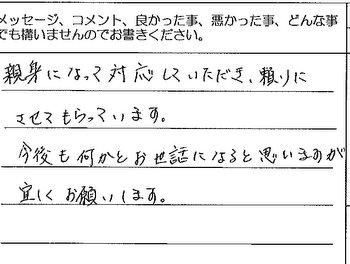 メッセージ、コメント、良かった事、悪かった事、どんな事
でも構いませんのでお書きください。
親身になって対応していただき、頼りに
させてもらっています。
今後も何かとお世話になると思いますが
宜しくお願いします。